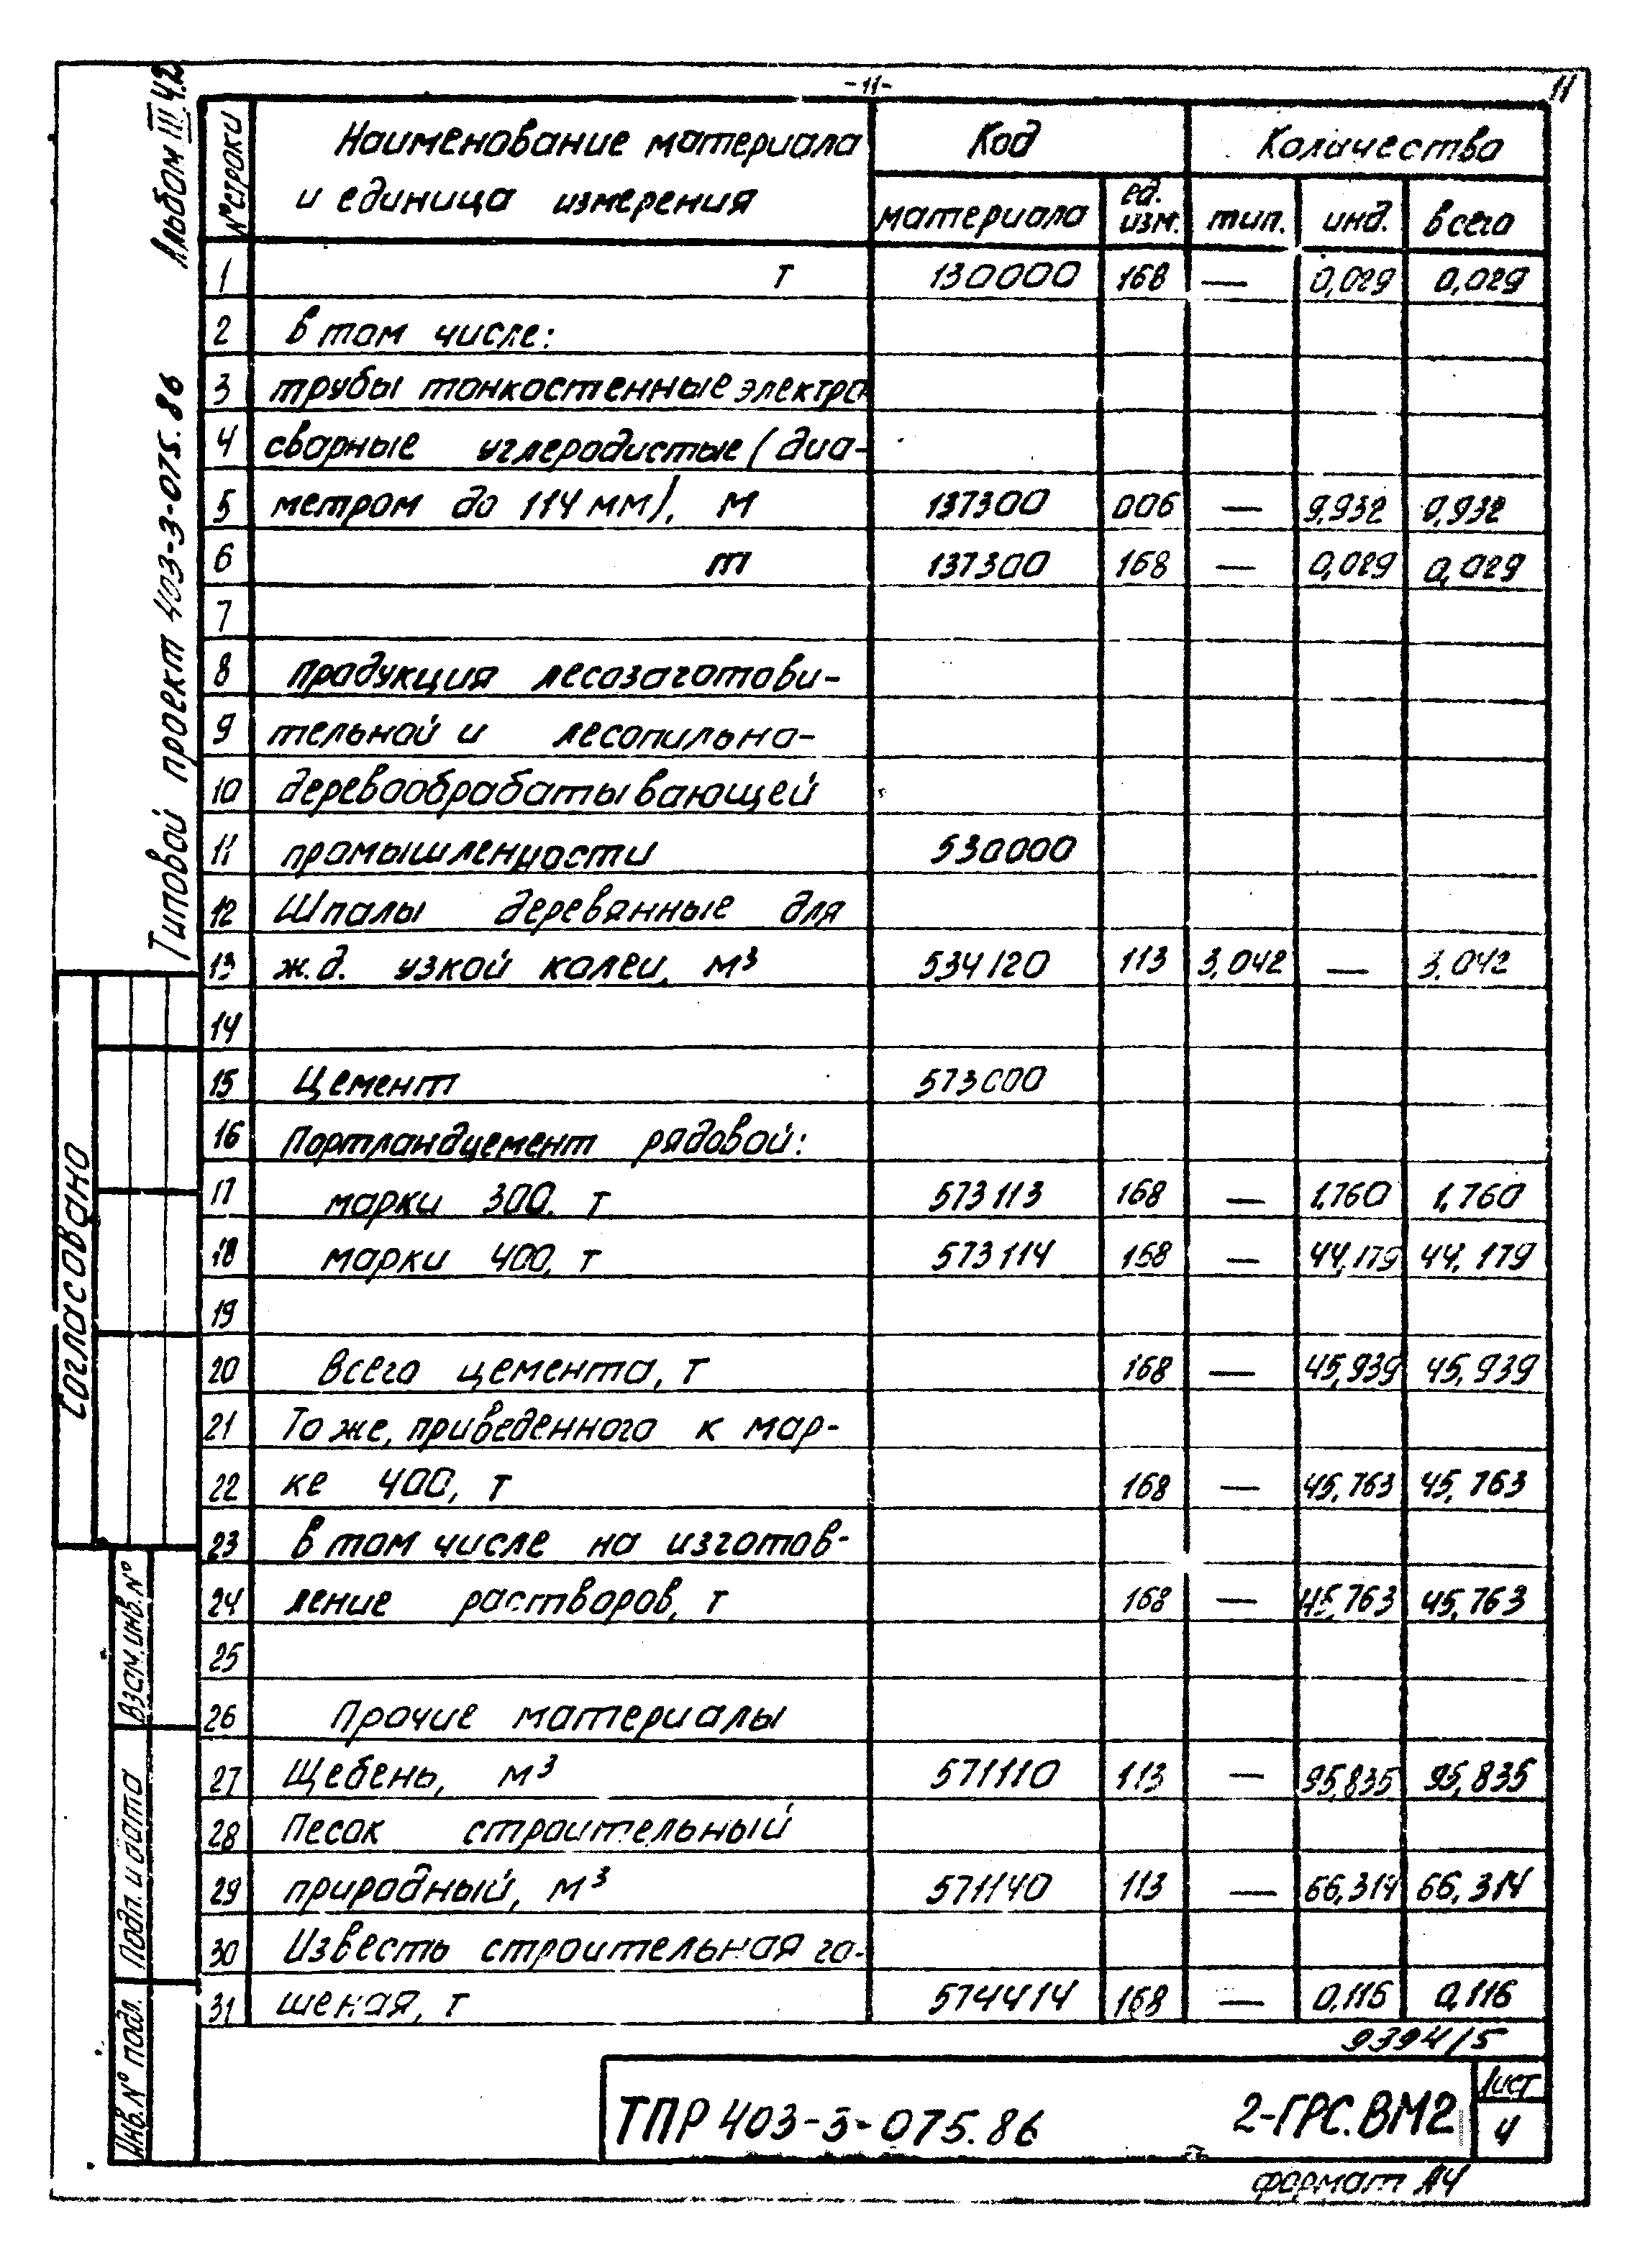 -11-
11
Альбом III 4.2
Типовой проект 403-3-075.86
№ строки
Наименование материала и единица измерения
Код
Количества
материала
ед. изм.
тип.
инд.
всего
1 т 130000 168 — 0,029 0,029
2 в том числе:
3 трубы тонкостенные электро
4 сварные углеродистые (диа-
5 метром до 114 мм), м 137300 006 — 9,932 9,932
6 т 137300 168 — 0,029 0,029
7
8 Продукция лесозаготови-
9 тельной и лесопильно-
10 деревообрабатывающей
11 промышленности 530000
12 Шпалы деревянные для
13 ж.д. узкой колеи, м³ 534120 113 3,042 — 3,042
14
15 Цемент 573000
16 Портландцемент рядовой:
17 марки 300, т 573113 168 — 1,760 1,760
18 марки 400, т 573114 168 — 44,179 44,179
19
20 Всего цемента, т 168 — 45,939 45,939
21 То же, приведенного к мар-
22 ке 400, т 168 — 45,763 45,763
23 в том числе на изготов-
24 ление растворов, т 168 — 45,763 45,763
25
26 Прочие материалы
27 Щебень, м³ 571110 113 — 95,835 95,835
28 Песок строительный
29 природный, м³ 571140 113 — 66,314 66,314
30 Известь строительная га-
31 шеная, т 574414 168 — 0,116 0,116
Согласовано
Взам.инв.№
Подп. и дата
Инв.№ подл.
9394/5
ТПР 403-3-075.86
2-ГРС.ВМ2
Лист
4
формат А4